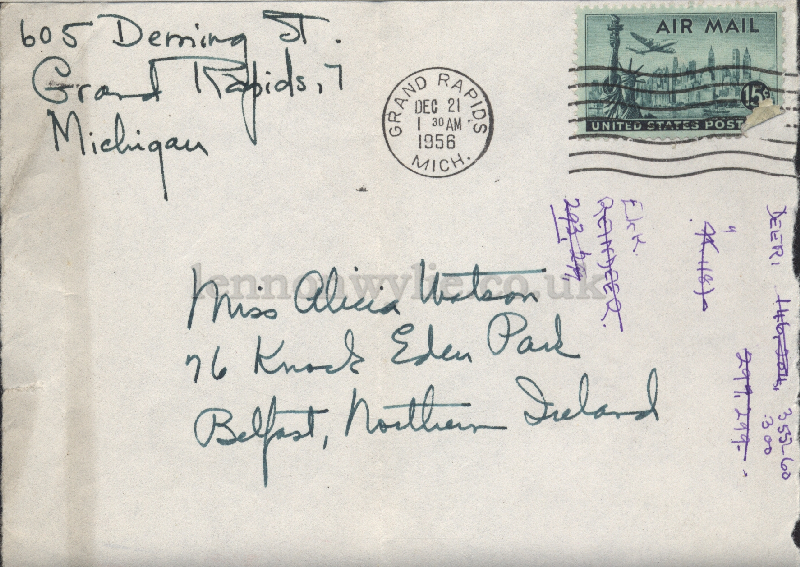 605 Deming St.
Grand Rapids, 7
Michigan
GRAND RAPIDS
DEC 21
1 30 AM
1956
MICH.
AIR MAIL
15¢
UNITED STATES POST
lennonwylie.co.uk
Miss Alicia Watson
76 Knock Eden Park
Belfast, Northern Ireland
Elk.
REINDEER.
DEER:
355-60
300